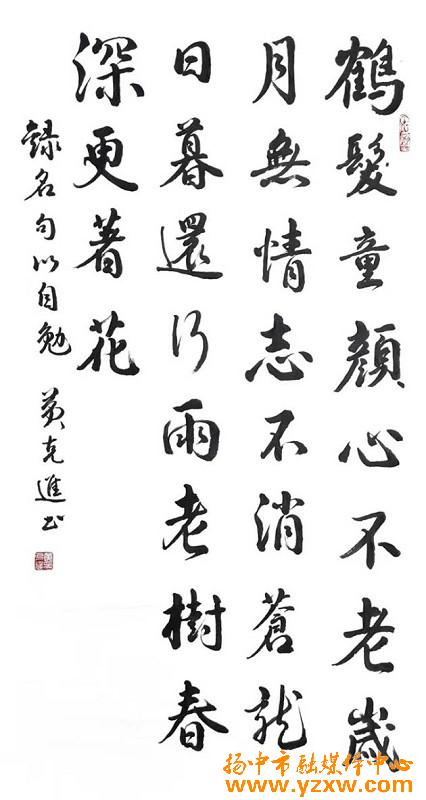 鶴髮童顏心不老歲
月無情志不消蒼龍
日暮還行雨老樹春
深更著花
錄名句以自勉 黃克進书
扬中市融媒体中心
www.yzxw.com